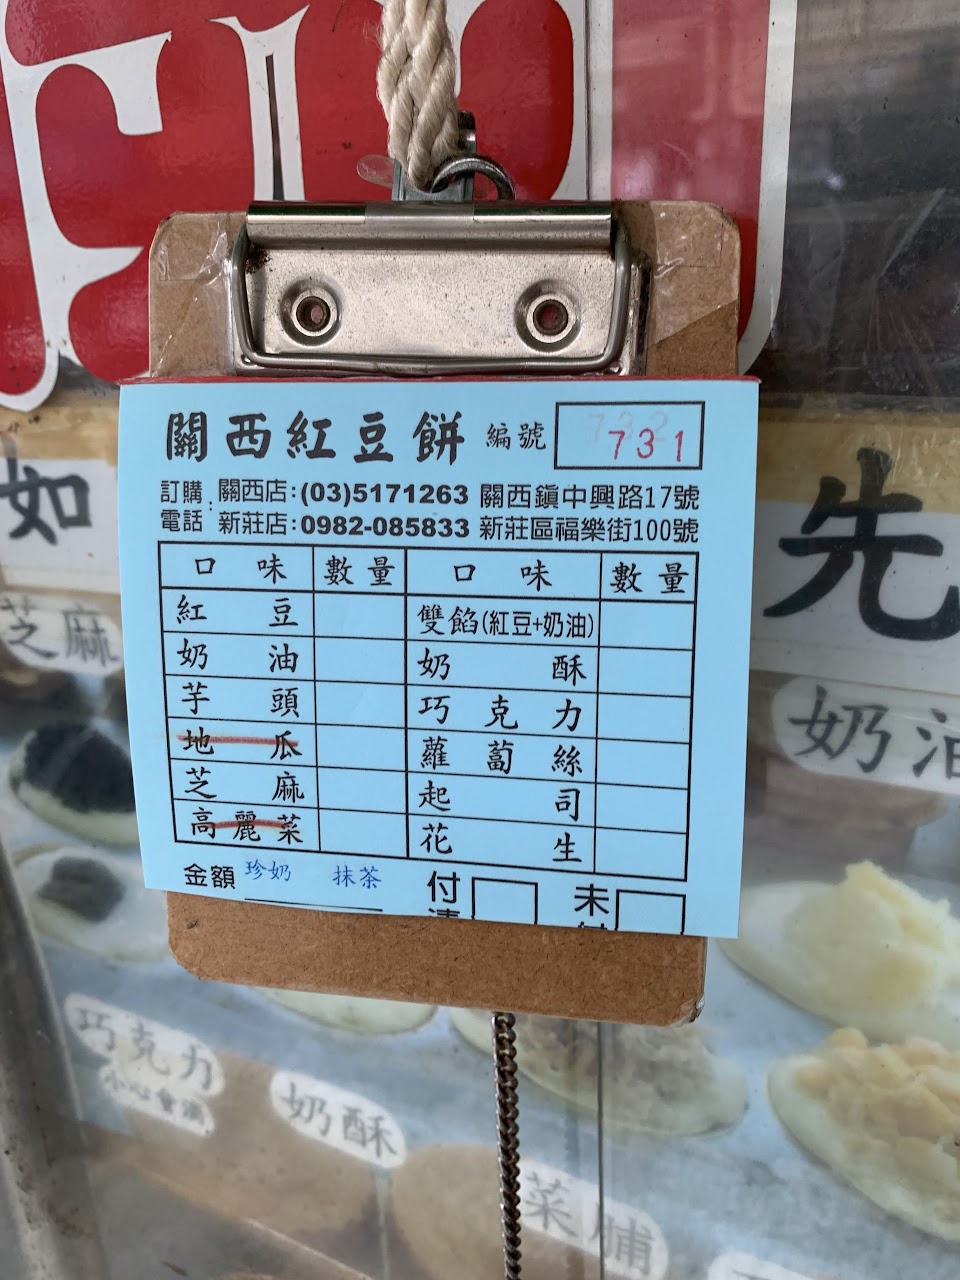 關西紅豆餅 編號 731
訂購 關西店:(03)5171263 關西鎮中興路17號
電話: 新莊店:0982-085833 新莊區福樂街100號
口味 數量 口味 數量
紅豆 雙餡(紅豆+奶油)
奶油 奶酥
芋頭 巧克力
地瓜 蘿蔔絲
芝麻 起司
高麗菜 花生
金額 珍奶 抹茶 付 未
如
先
芝麻
奶油
巧克力
小心會
奶酥
菜脯